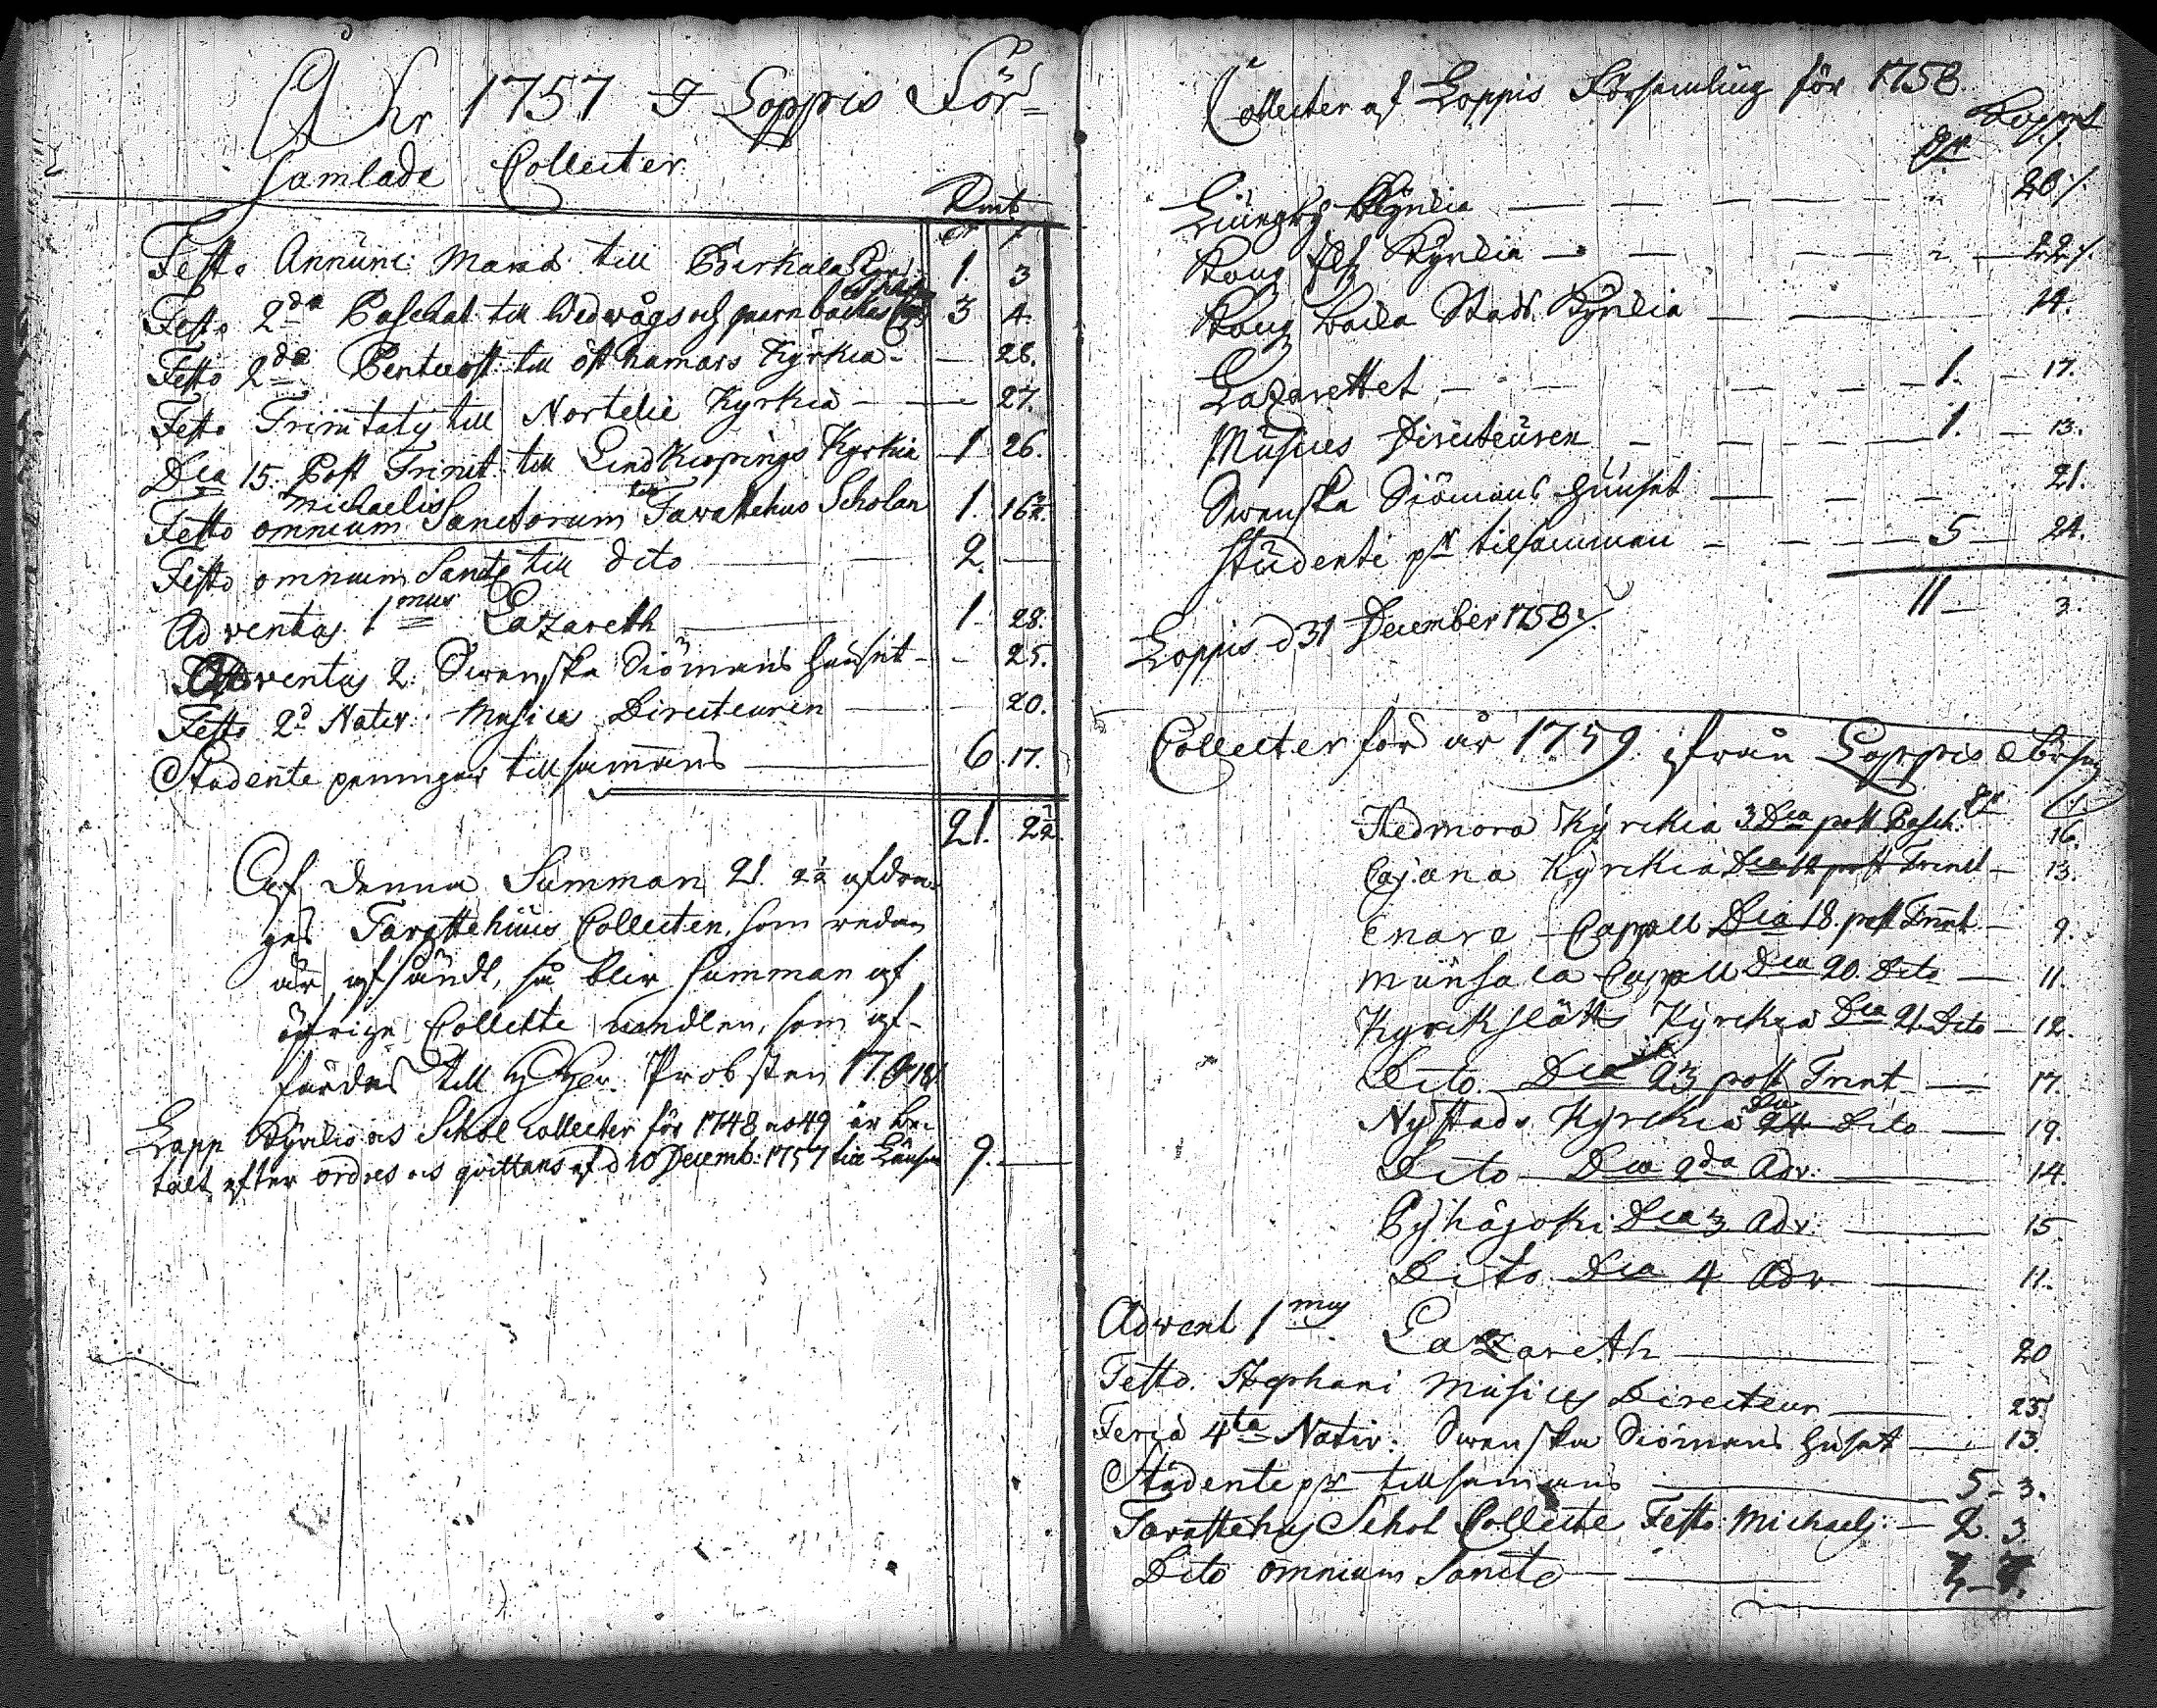 Åhr 1757 I Loppis För=
samlade Collecter.
Kmt
Festo Annunc: Mariæ till Birkala 1. 3
Festo 2da Paschat: till Wedwågs och qwarnbackas 3 4.
Festo 2da Pentecost: till östhamars Kyrkia - — 28.
Festo Trinitatis till Nortelie Kyrkia — — 27.
Dca 15. Post Trinit: till Lindkiöpings Kyrkia 1 26.
Michaelis
Festo omnium Sanctorum till Tavastehus Scholan 1. 16½.
Festo omnium Sancto till dito — — 2. —
Adventus 1mus Lazareth — 1. 28.
Adventus 2. Swenska Siömans huuset - - 25.
Festo 2d Nativ: Musices Directeuren — 20.
Studente penningar tillsammans — 6. 17.
21. 2½.
Af denna Summan 21. 2½ afdra-
ges Tavastehuus Collecten, som redan
är afsändt, så blir Summan af
öfrige Collecte medlen, som af-
färdas till H Her. Probsten 17.
Lapp Kyrkio och Schole collecter för 1748 och 49 är be-
talt efter ordres och quittans af d 10 Decemb: 1757 9. —
Collecter af Loppis Församling för 1758.
Koppmt
Liungby Kyrkia — — — — — 20 /.
Skoug Kyrkia — — — — 22 /.
Stads Kyrkia — — — 14.
Lazarettet — — — — — 1. — 17.
Musices Directeuren — — — — 1. — 13.
Swenska Siömans huuset — — — 21.
Studente pgr tilsamman — — — 5 — 24.
11 — 3.
Loppis d 31 December 1758 /.
Collecter för år 1759 ifrån Loppis Församl
Hedmora Kyrckia 3 Dca post Pasch: 16.
Cajana Kyrckia Dca 12 post Trinit — 13.
Enare Cappell Dca 18. post Trinit — 9.
Munsala Cappell Dca 20. Dito — 11.
Kyrckslätts Kyrckia Dca 21. Dito — 12.
Dito Dca 23 post Trinit — 17.
Nystads Kyrckia Dca 24. Dito — 19.
Dito Dca 2da Adv: — 14.
Pyhäjoki Dca 3 Adv: — 15.
Dito Dca 4 Adv — 11.
Advent 1mus Lazareth — 20
Festo. Stephani Musices Directeur — 23.
Feria 4ta Nativ: Swenska Siömans huset — 13.
Studente pgr tillsammans — 5 - 3.
Tavastehus Schol Collecte Festo Michaels: — 2. 3
Dito omnium Sancto —